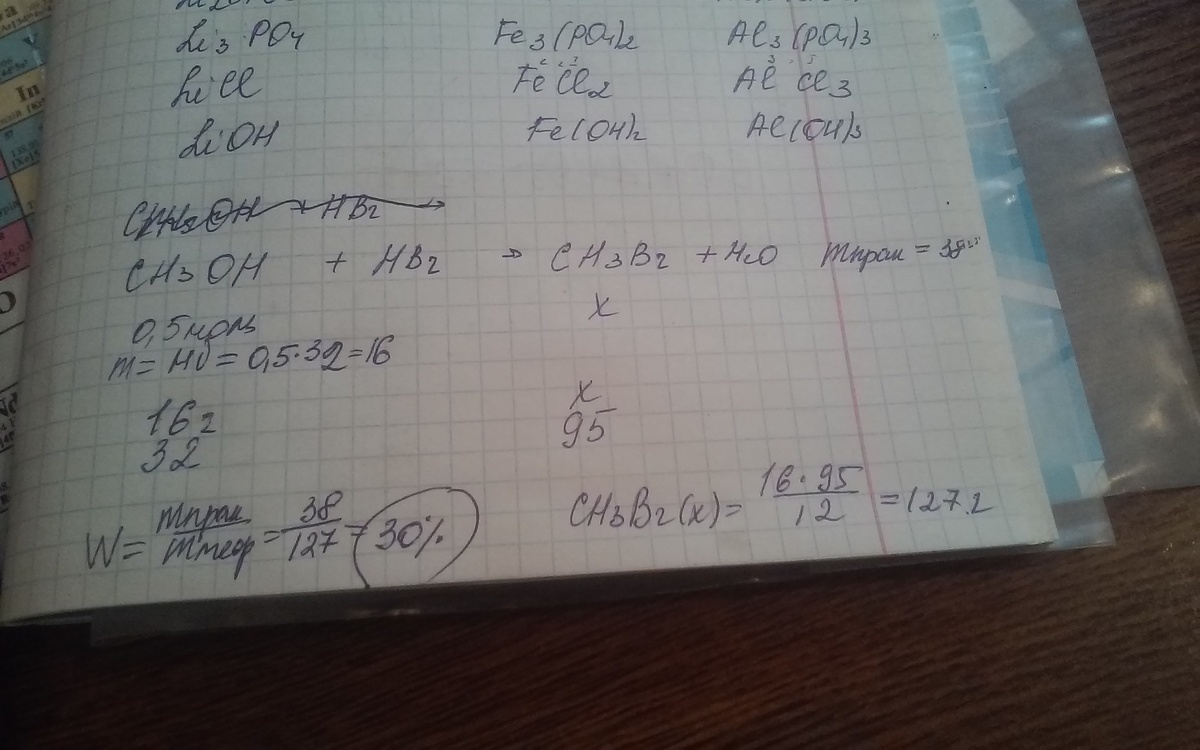 Li3PO4 Fe3(PO4)2 Al3(PO4)3
LiCl FeCl2 AlCl3
LiOH Fe(OH)2 Al(OH)3
+ HBr →
CH3OH + HBr → CH3Br + H2O mпрак = 38
x
0,5 моль
m = Mν = 0,5·32 = 16
16 г x
32 95
W = mпрак/mтеор = 38/127 = 30% CH3Br(x) = 16·95/12 = 127 г
In